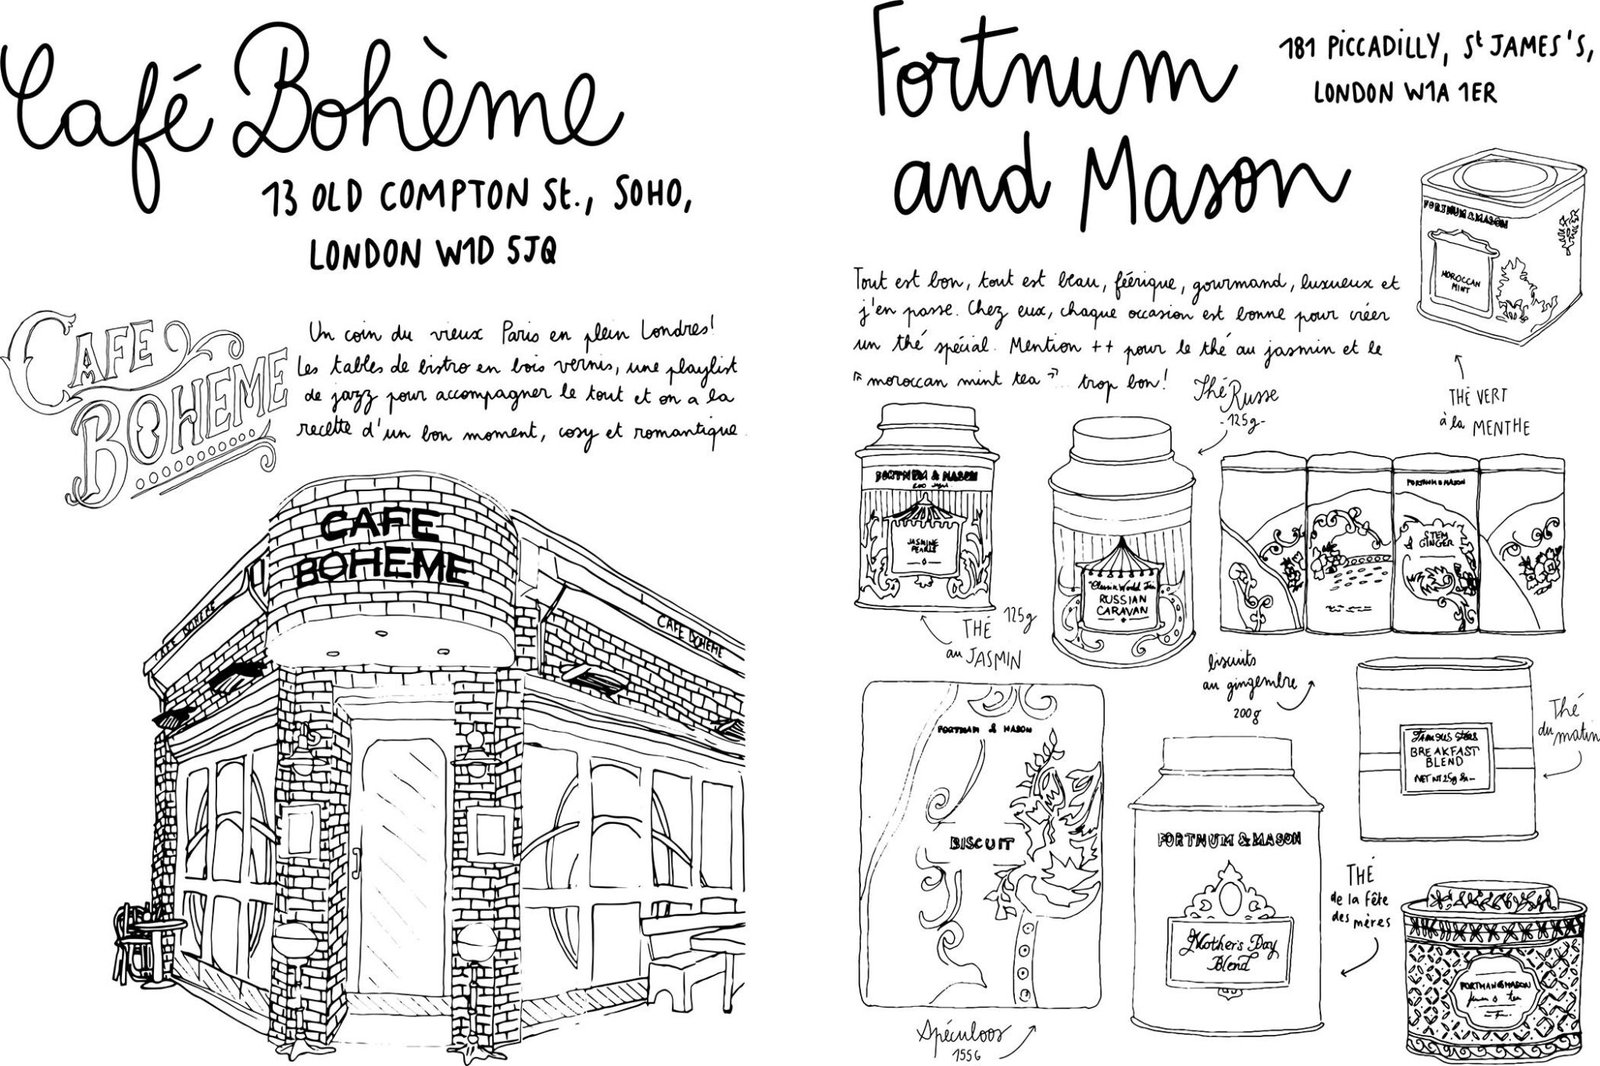 Café Bohème
13 OLD COMPTON St., SOHO,
LONDON W1D 5JQ
CAFE
BOHEME
Un coin du vieux Paris en plein Londres!
Les tables de bistro en bois vernis, une playlist
de jazz pour accompagner le tout et on a la
recette d'un bon moment, cosy et romantique.
CAFE
BOHEME
CAFE BOHEME
CAFE BOHEME
Fortnum
and Mason
181 PICCADILLY, St JAMES'S,
LONDON W1A 1ER
Tout est bon, tout est beau, féérique, gourmand, luxueux et
j'en passe. Chez eux, chaque occasion est bonne pour créer
un thé spécial. Mention ++ pour le thé au jasmin et le
"moroccan mint tea"... trop bon!
FORTNUM & MASON
MOROCCAN
MINT
THÉ VERT
à la MENTHE
Thé Russe
-125g-
FORTNUM & MASON
JASMINE
PEARLS
125g
THÉ
au JASMIN
RUSSIAN
CARAVAN
FORTNUM & MASON
STEM
GINGER
biscuits
au gingembre
200g
FORTMAN & MASON
BISCUIT
Spéculoos
155G
FORTNUM & MASON
Mother's Day
Blend
THÉ
de la fête
des mères
BREAKFAST
BLEND
Thé
du matin
FORTMAN & MASON